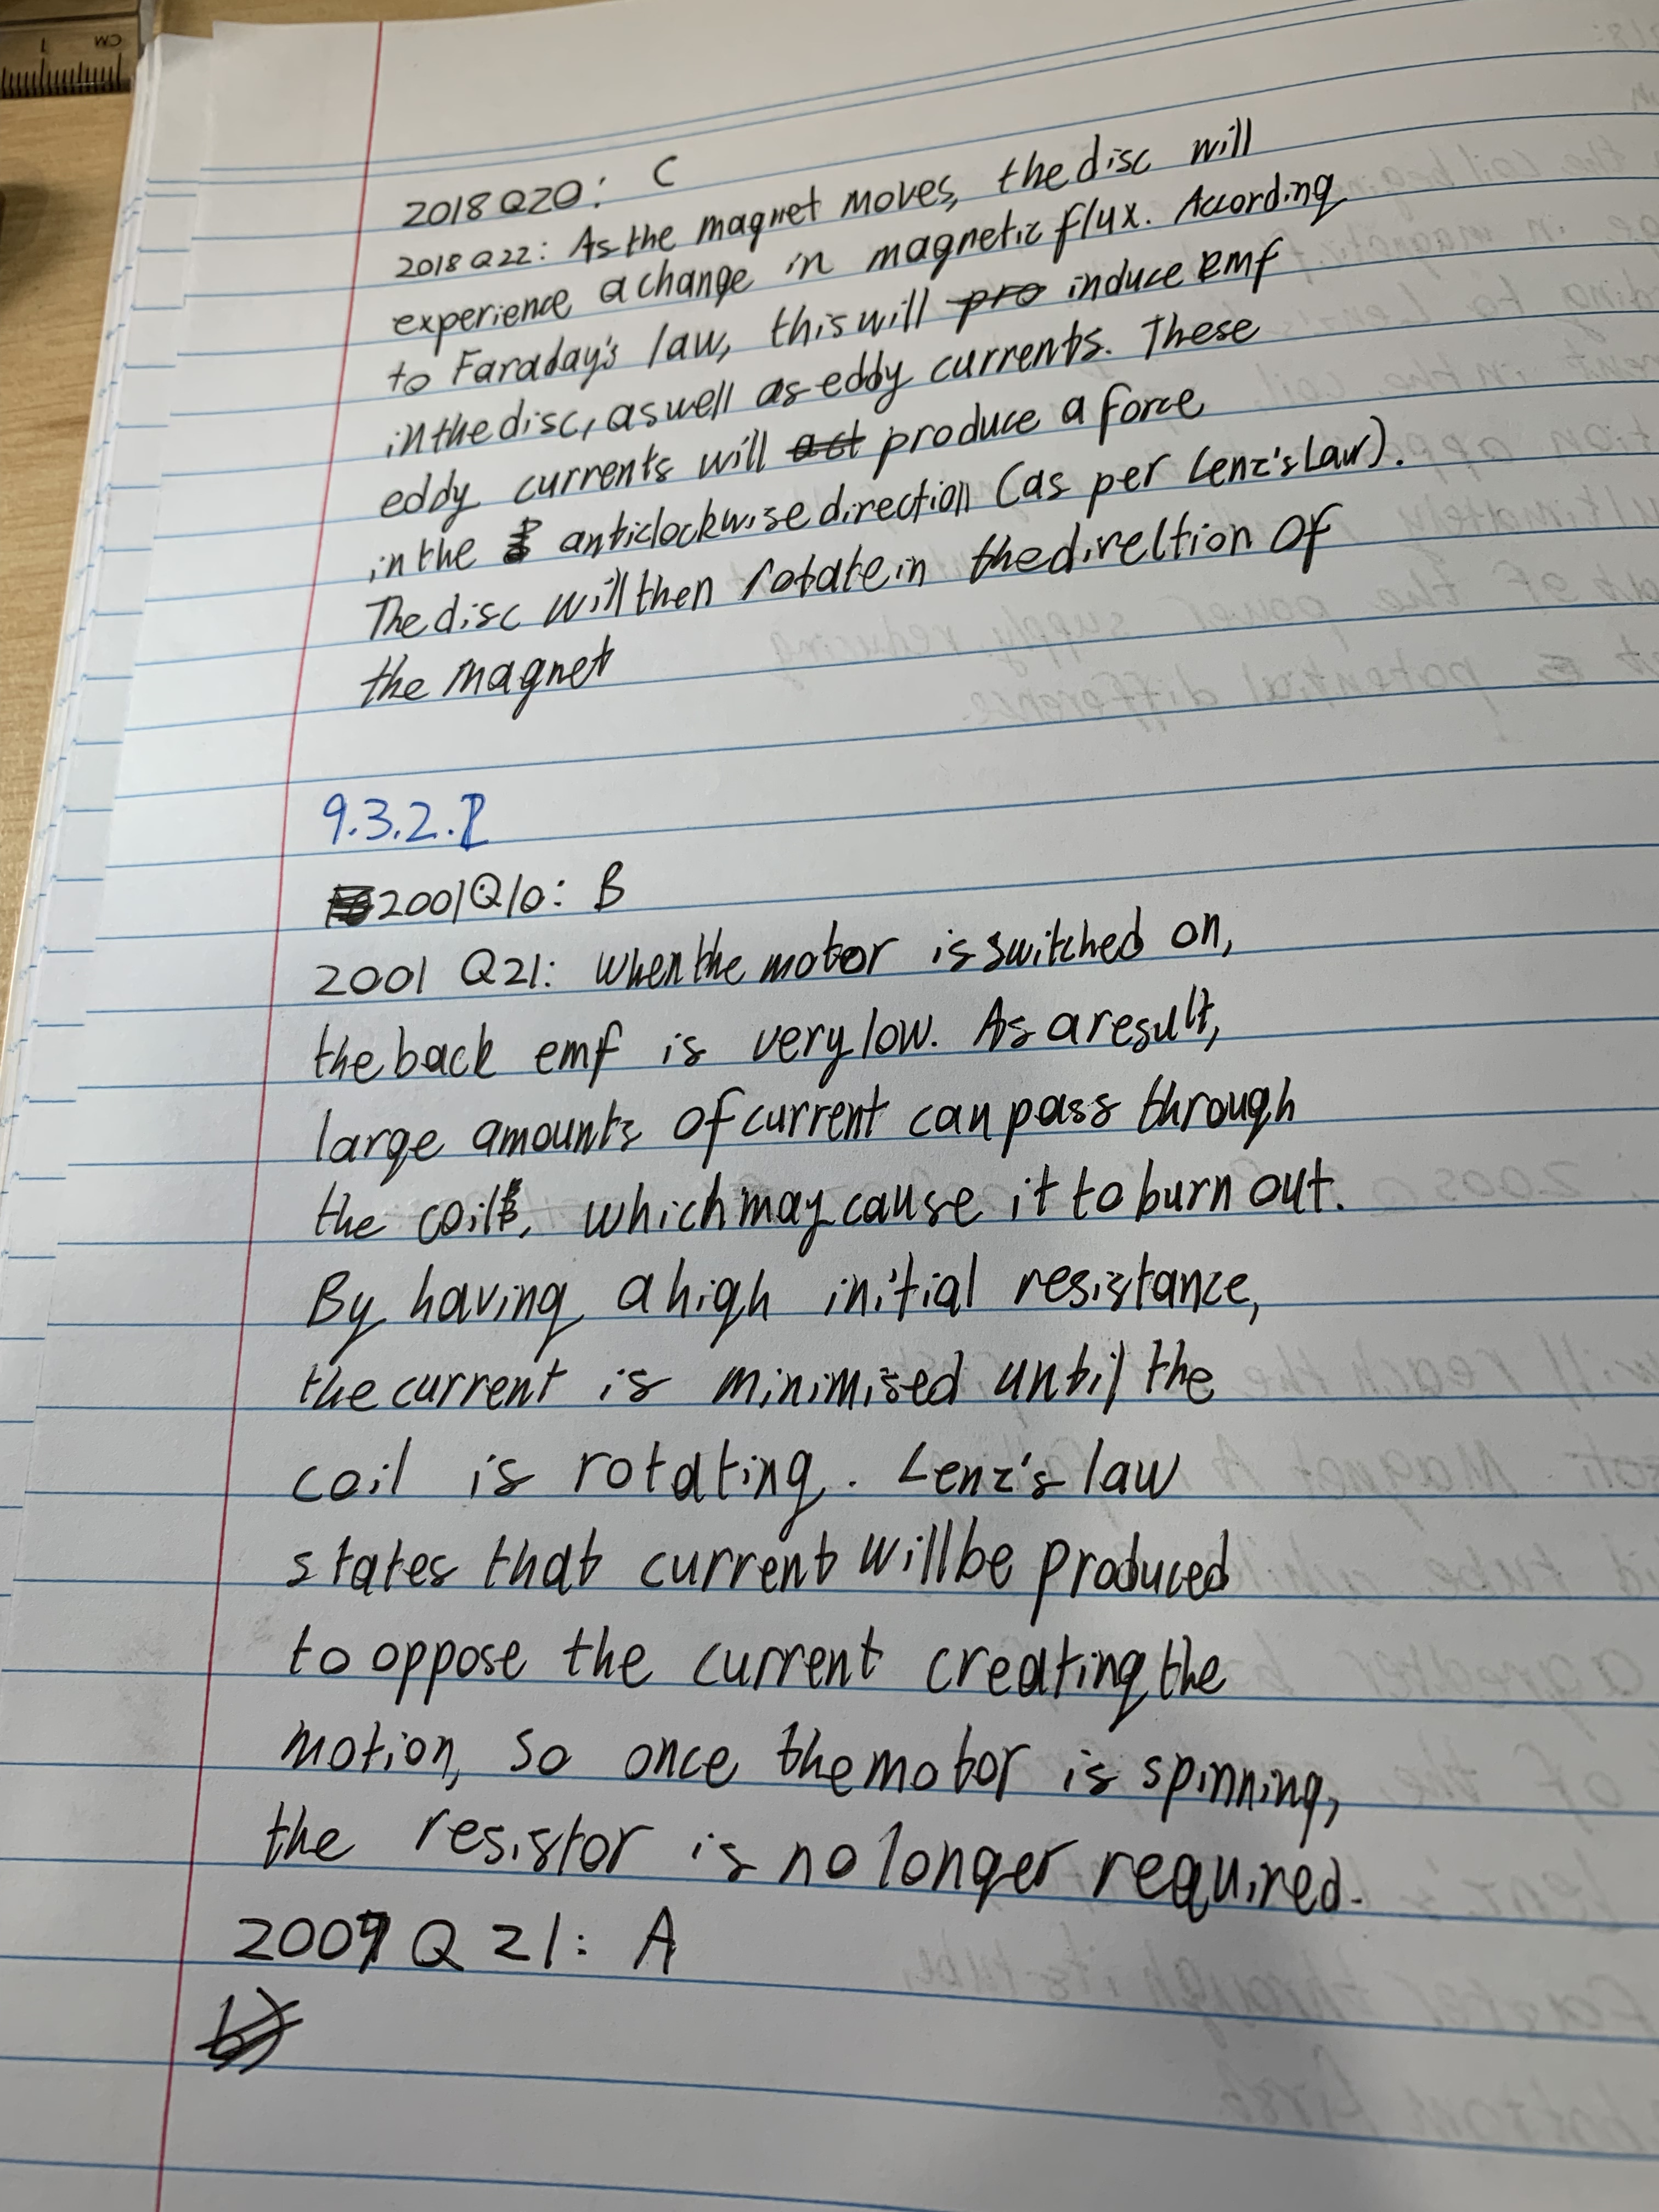 2018 Q20: C
2018 Q22: As the magnet moves, the disc will
experience a change in magnetic flux. According
to Faraday's law, this will pro induce emf
in the disc, as well as eddy currents. These
eddy currents will act produce a force
in the anticlockwise direction (as per Lenz's Law).
The disc will then rotate in the direction of
the magnet
9.3.2.
2001 Q10: B
2001 Q21: When the motor is switched on,
the back emf is very low. As a result,
large amounts of current can pass through
the coil, which may cause it to burn out.
By having a high initial resistance,
the current is minimised until the
coil is rotating. Lenz's law
states that current will be produced
to oppose the current creating the
motion, so once the motor is spinning,
the resistor is no longer required.
Q 21: A
b)